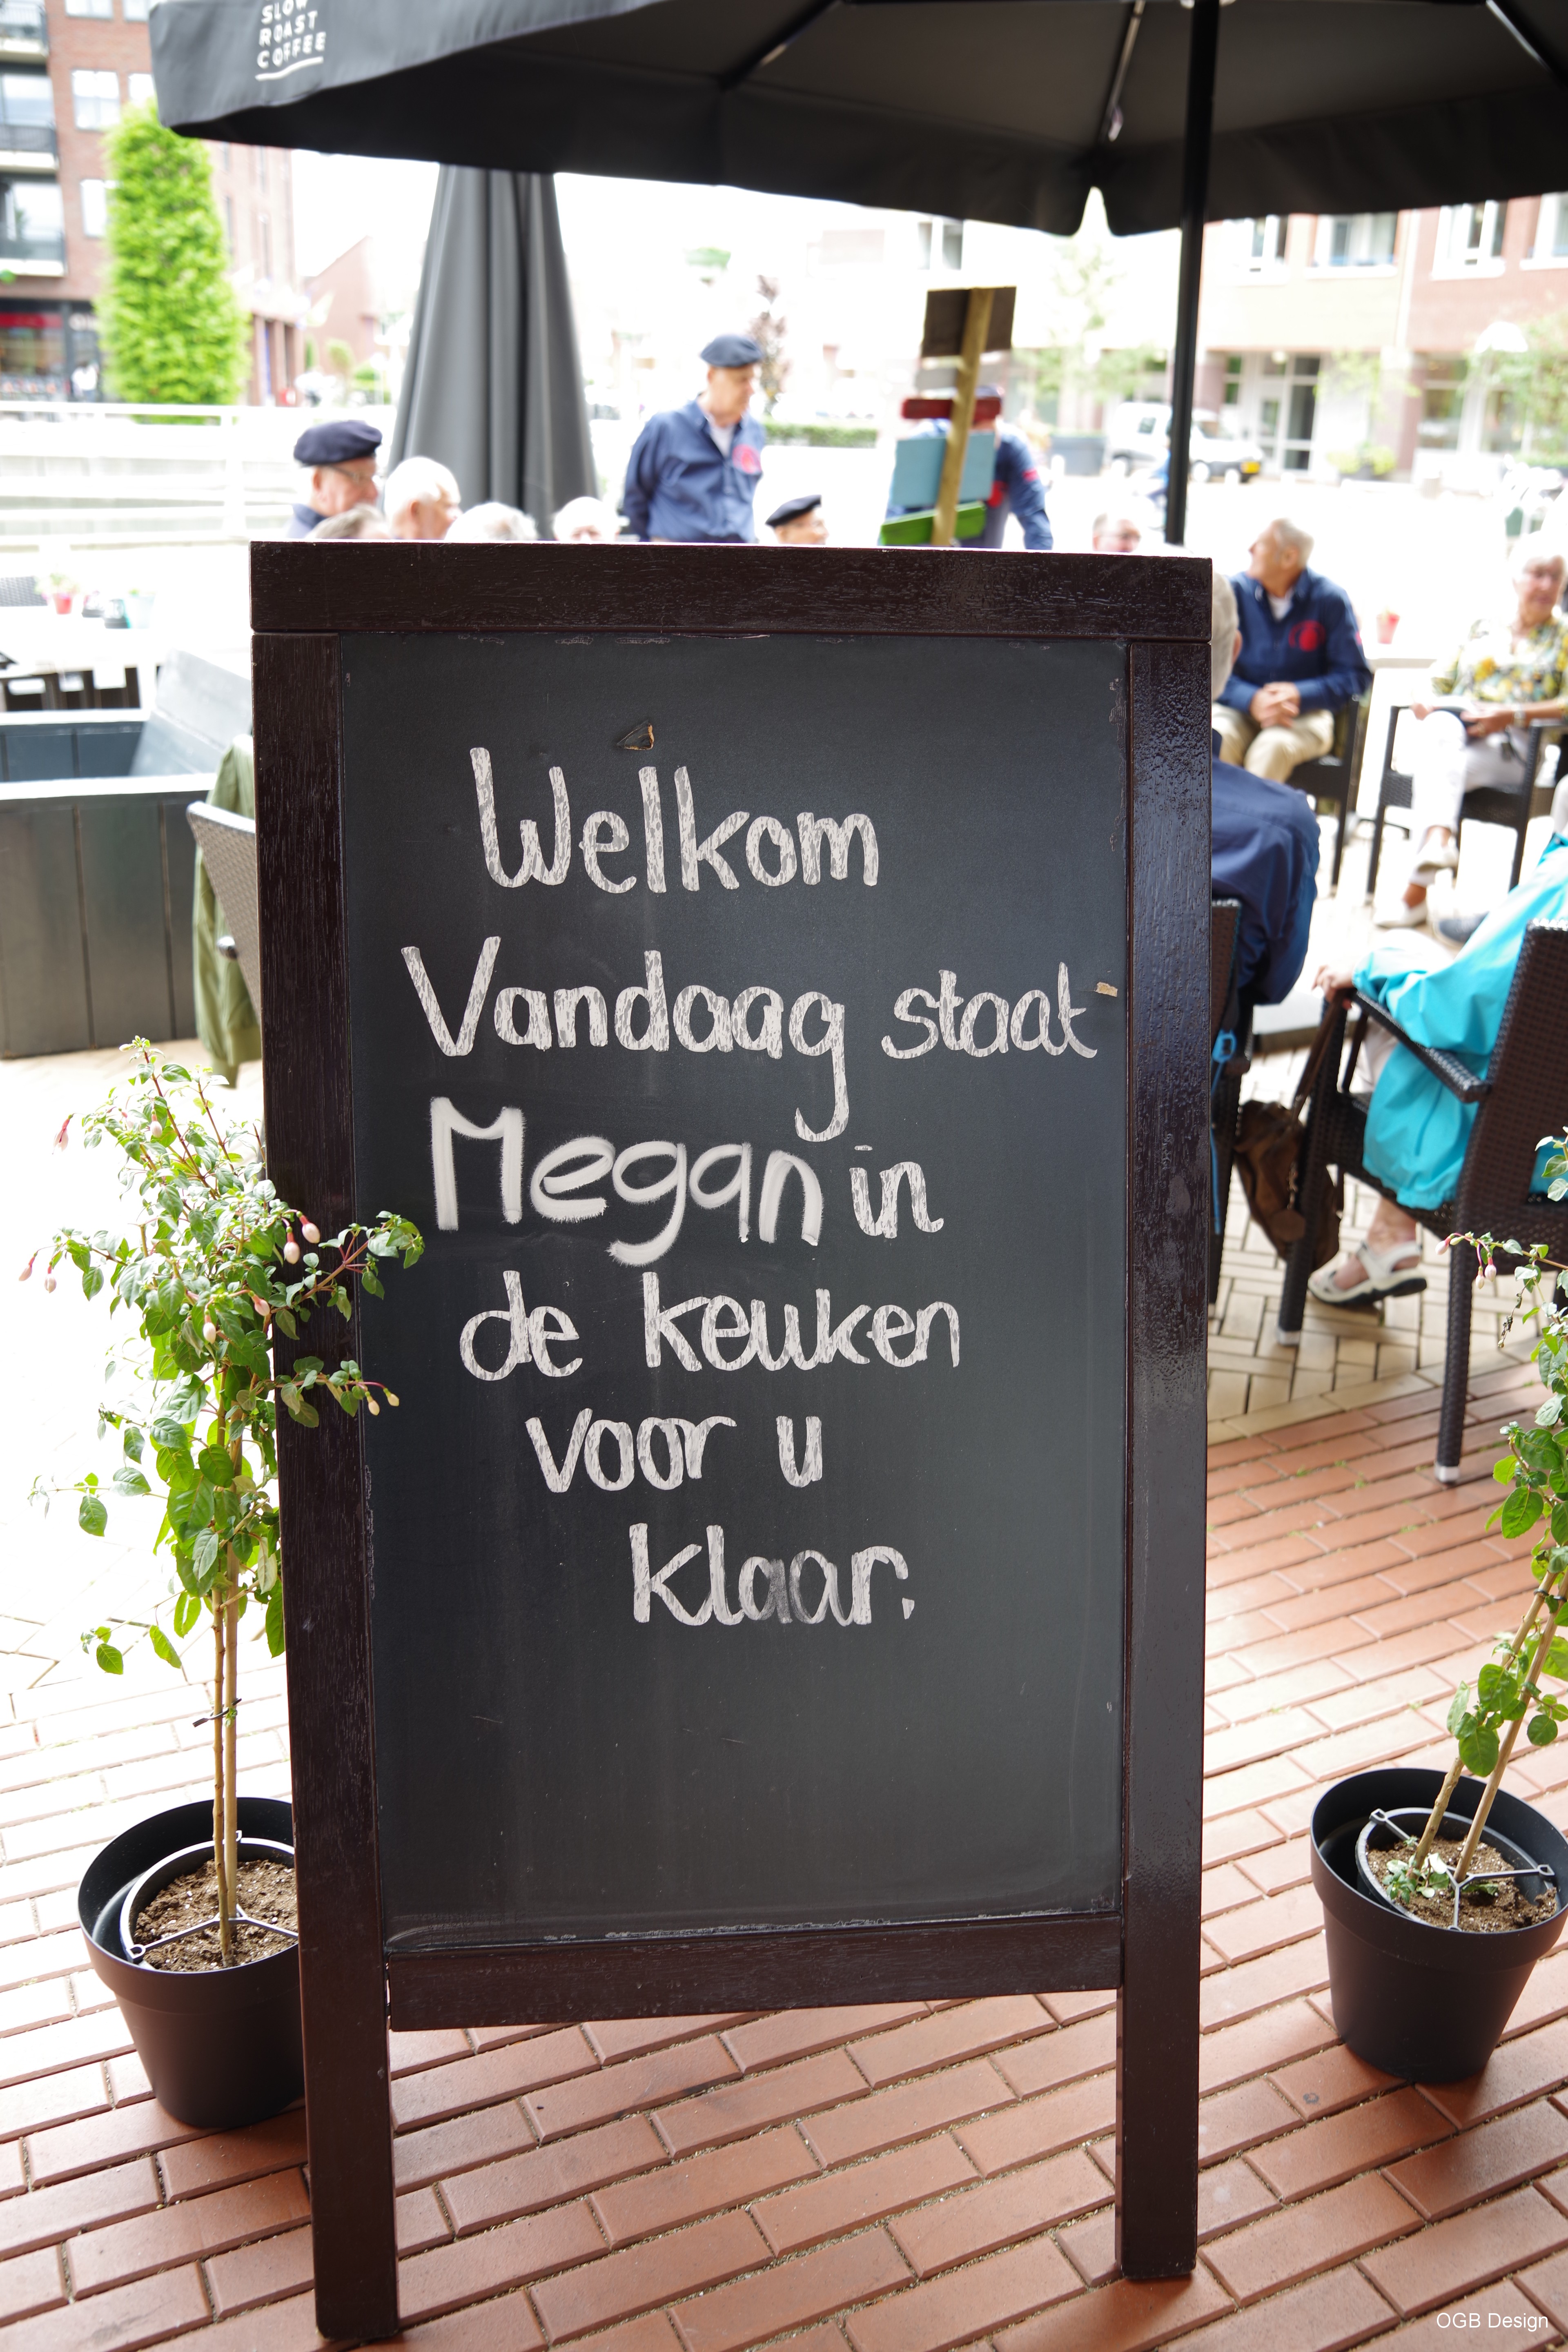 SLOW
ROAST
COFFEE
Welkom
Vandaag staat
Megan in
de keuken
voor u
klaar.
OGB Design